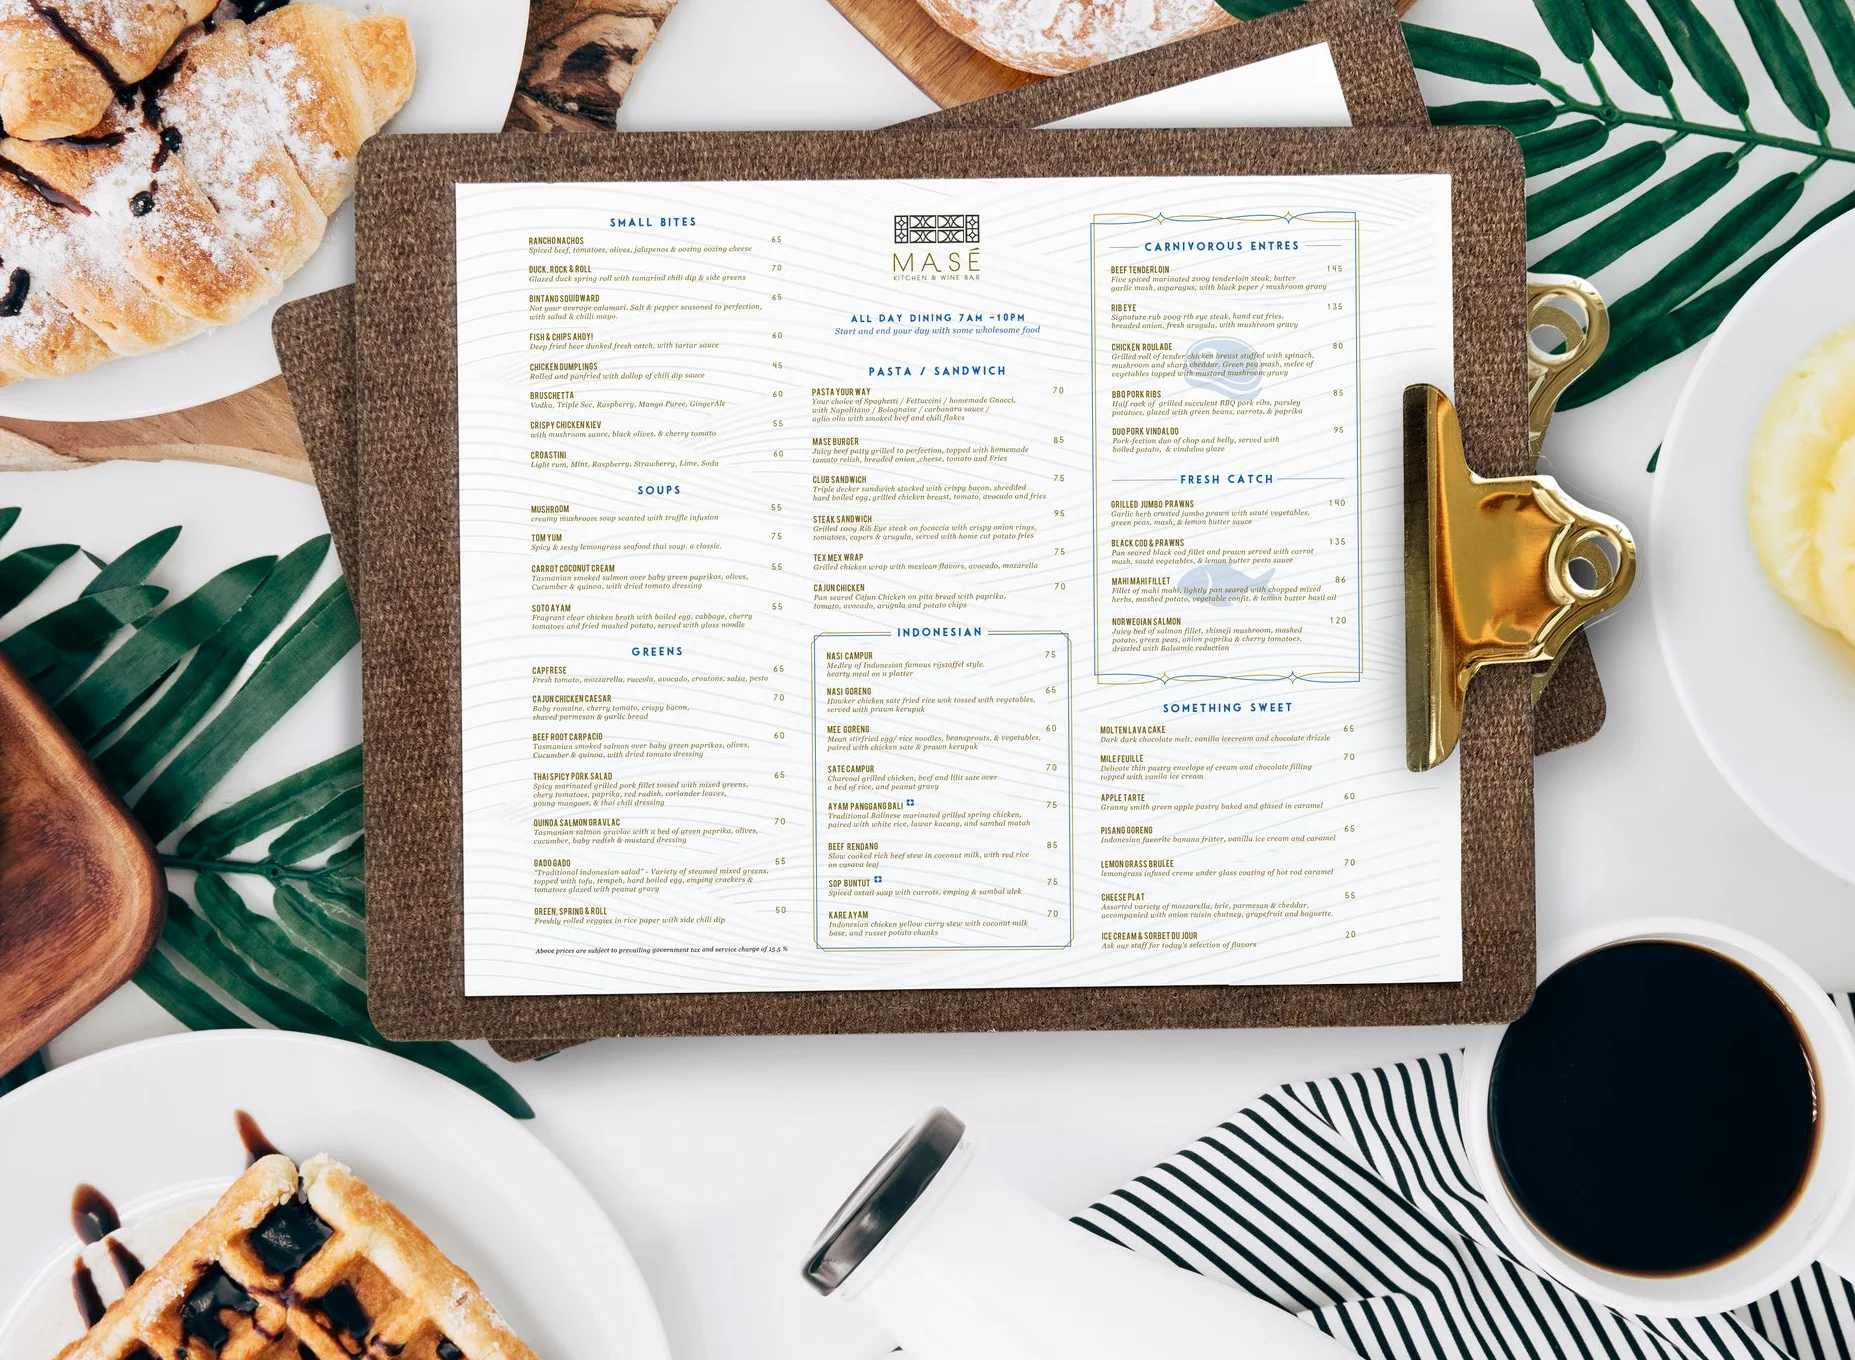 SMALL BITES
RANCHO NACHOS 65
Spiced beef, tomatoes, olives, jalapenos & oozing oozing cheese
DUCK, ROCK & ROLL 70
Glazed duck spring roll with tamarind chili dip & side greens
BINTANG SQUIDWARD 65
Not your average calamari. Salt & pepper seasoned to perfection,
with salad & chilli mayo.
FISH & CHIPS AHOY! 60
Deep fried beer dunked fresh catch, with tartar sauce
CHICKEN DUMPLINGS 45
Rolled and panfried with dollop of chili dip sauce
BRUSCHETTA 60
Vodka, Triple Sec, Raspberry, Mango Puree, GingerAle
CRISPY CHICKEN KIEV 55
with mushroom sauce, black olives, & cherry tomato
CROASTINI 60
Light rum, Mint, Raspberry, Strawberry, Lime, Soda
SOUPS
MUSHROOM 55
creamy mushroom soup scanted with truffle infusion
TOM YUM 75
Spicy & zesty lemongrass seafood thai soup. a classic.
CARROT COCONUT CREAM 55
Tasmanian smoked salmon over baby green paprikas, olives,
Cucumber & quinoa, with dried tomato dressing
SOTO AYAM 55
Fragrant clear chicken broth with boiled egg, cabbage, cherry
tomatoes and fried mashed potato, served with glass noodle
GREENS
CAPFRESE 65
Fresh tomato, mozzarella, ruccola, avocado, croutons, salsa, pesto
CAJUN CHICKEN CAESAR 70
Baby romaine, cherry tomato, crispy bacon,
shaved parmesan & garlic bread
BEEF ROOT CARPACIO 60
Tasmanian smoked salmon over baby green paprikas, olives,
Cucumber & quinoa, with dried tomato dressing
THAI SPICY PORK SALAD 65
Spicy marinated grilled pork fillet tossed with mixed greens,
chery tomatoes, paprika, red radish, coriander leaves,
young mangoes, & thai chili dressing
QUINOA SALMON GRAVLAC 70
Tasmanian salmon gravlac with a bed of green paprika, olives,
cucumber, baby radish & mustard dressing
GADO GADO 55
"Traditional indonesian salad" - Variety of steamed mixed greens,
topped with tofu, tempeh, hard boiled egg, emping crackers &
tomatoes glazed with peanut gravy
GREEN, SPRING & ROLL 50
Freshly rolled veggies in rice paper with side chili dip
Above prices are subject to prevailing government tax and service charge of 15.5 %
MASÉ
KITCHEN & WINE BAR
ALL DAY DINING 7AM –10PM
Start and end your day with some wholesome food
PASTA / SANDWICH
PASTA YOUR WAY 70
Your choice of Spaghetti / Fettuccini / homemade Gnocci,
with Napolitano / Bolognaise / carbonara sauce /
aglio olio with smoked beef and chili flakes
MASE BURGER 85
Juicy beef patty grilled to perfection, topped with homemade
tomato relish, breaded onion ,cheese, tomato and Fries
CLUB SANDWICH 75
Triple decker sandwich stacked with crispy bacon, shredded
hard boiled egg, grilled chicken breast, tomato, avocado and fries
STEAK SANDWICH 95
Grilled 100g Rib Eye steak on focaccia with crispy onion rings,
tomatoes, capers & arugula, served with home cut potato fries
TEX MEX WRAP 75
Grilled chicken wrap with mexican flavors, avocado, mozarella
CAJUN CHICKEN 70
Pan seared Cajun Chicken on pita bread with paprika,
tomato, avocado, arugula and potato chips
INDONESIAN
NASI CAMPUR 75
Medley of Indonesian famous rijstaffel style.
hearty meal on a platter
NASI GORENG 65
Hawker chicken sate fried rice wok tossed with vegetables,
served with prawn kerupuk
MEE GORENG 60
Mean stirfried egg/ rice noodles, beansprouts, & vegetables,
paired with chicken sate & prawn kerupuk
SATE CAMPUR 70
Charcoal grilled chicken, beef and lilit sate over
a bed of rice, and peanut gravy
AYAM PANGGANG BALI 75
Traditional Balinese marinated grilled spring chicken,
paired with white rice, lawar kacang, and sambal matah
BEEF RENDANG 85
Slow cooked rich beef stew in coconut milk, with red rice
on casava leaf
SOP BUNTUT 75
Spiced oxtail soup with carrots, emping & sambal ulek
KARE AYAM 70
Indonesian chicken yellow curry stew with coconut milk
base, and russet potato chunks
CARNIVOROUS ENTRES
BEEF TENDERLOIN 145
Five spiced marinated 200g tenderloin steak, butter
garlic mash, asparagus, with black peper / mushroom gravy
RIB EYE 135
Signature rub 200g rib eye steak, hand cut fries,
breaded onion, fresh arugula, with mushroom gravy
CHICKEN ROULADE 80
Grilled roll of tender chicken breast stuffed with spinach,
mushroom and sharp cheddar. Green pea mash, melee of
vegetables topped with mustard mushroom gravy
BBQ PORK RIBS 85
Half rack of grilled succulent BBQ pork ribs, parsley
potatoes, glazed with green beans, carrots, & paprika
DUO PORK VINDALOO 95
Pork-fection duo of chop and belly, served with
boiled potato, & vindaloo glaze
FRESH CATCH
GRILLED JUMBO PRAWNS 140
Garlic herb crusted jumbo prawn with sauté vegetables,
green peas, mash, & lemon butter sauce
BLACK COD & PRAWNS 135
Pan seared black cod fillet and prawn served with carrot
mash, sauté vegetables, & lemon butter pesto sauce
MAHI MAHI FILLET 86
Fillet of mahi mahi, lightly pan seared with chopped mixed
herbs, mashed potato, vegetable confit, & lemon butter basil oil
NORWEGIAN SALMON 120
Juicy bed of salmon fillet, shimeji mushroom, mashed
potato, green peas, onion paprika & cherry tomatoes,
drizzled with Balsamic reduction
SOMETHING SWEET
MOLTEN LAVA CAKE 65
Dark dark chocolate melt, vanilla icecream and chocolate drizzle
MILE FEUILLE 70
Delicate thin pastry envelope of cream and chocolate filling
topped with vanila ice cream
APPLE TARTE 60
Granny smith green apple pastry baked and glazed in caramel
PISANG GORENG 65
Indonesian favorite banana fritter, vanilla ice cream and caramel
LEMON GRASS BRULEE 70
lemongrass infused creme under glass coating of hot rod caramel
CHEESE PLAT 55
Assorted variety of mozzarella, brie, parmesan & cheddar,
accompanied with onion raisin chutney, grapefruit and baguette.
ICE CREAM & SORBET DU JOUR 20
Ask our staff for today's selection of flavors